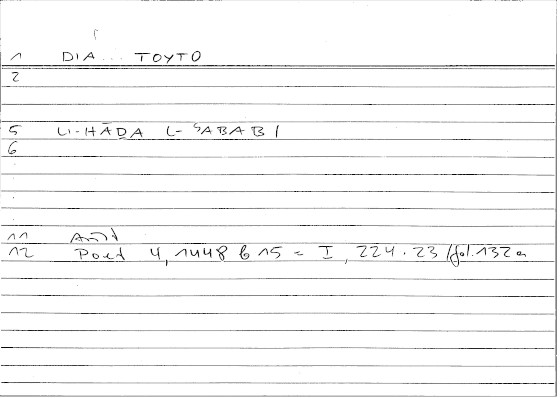 1 DIA... TOYTO
2
5 LI-HĀḎA L-SABABI
6
11 Arist
12 Poet 4, 1448 b 15 = I, 224.23 / fol. 132a